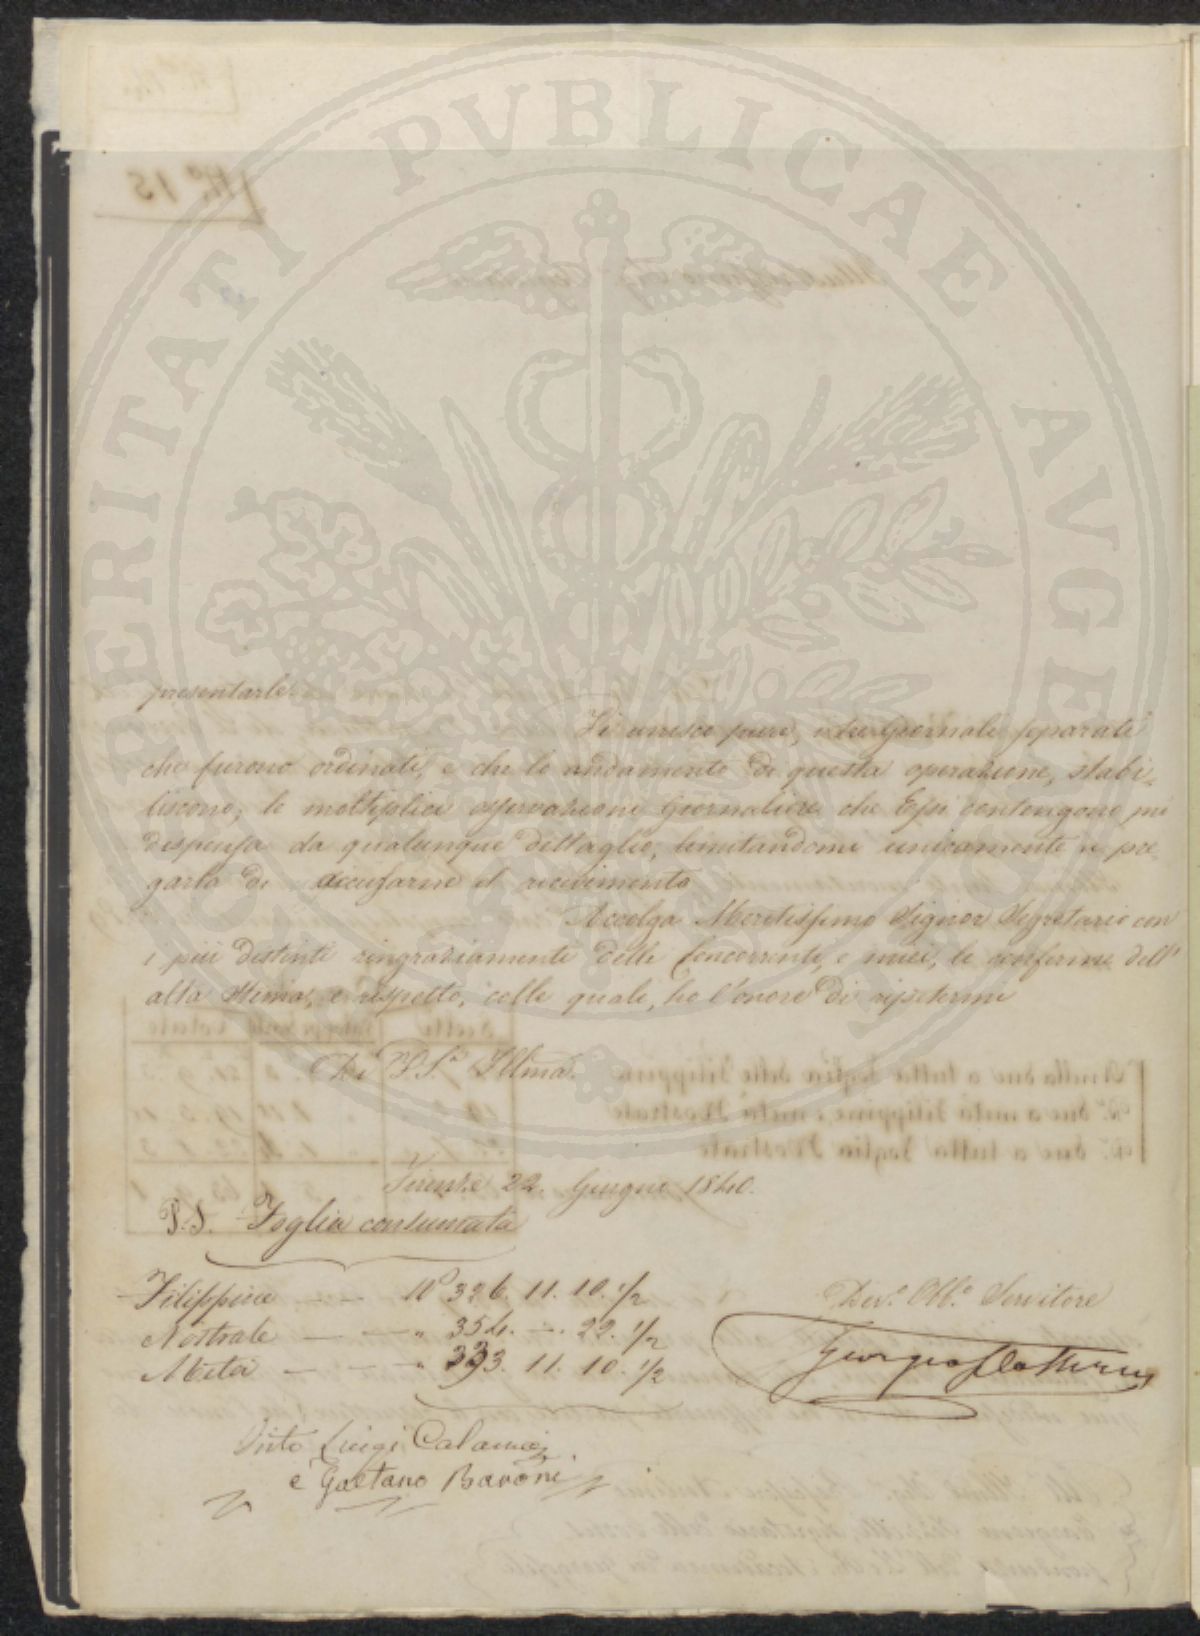 PROSPERITATI PUBLICAE AUGENDAE
presentarle.
Si unisce pure, i due Giornali separati
che furono ordinati, e che lo andamento di questa operazione, stabi-
liscono; le moltiplici osservazioni Giornaliere che Essi contengono mi
dispensa da qualunque dittaglio, limitandomi unicamente a pre-
garla di accusarne il ricevimento
Accolga Meritissimo Signor Segretario con
i più distinti ringraziamenti delli Concorrenti, e miei, le conferme dell'
alta stima, e rispetto, colle quale, ho l'onore di ripetermi
Di V. S.a Ill.ma
Firenze 22. Giugno 1840.
P.S. Foglia consumata
Filippine — — No 326. 11. 10. 1/2
Nostrale — — " 354. — 22. 1/2
Metà — — " 11. 10. 1/2
Dev.o Obb.o Servitore
Giorgio
Visto Luigi Calamai
e Gaetano Baroni